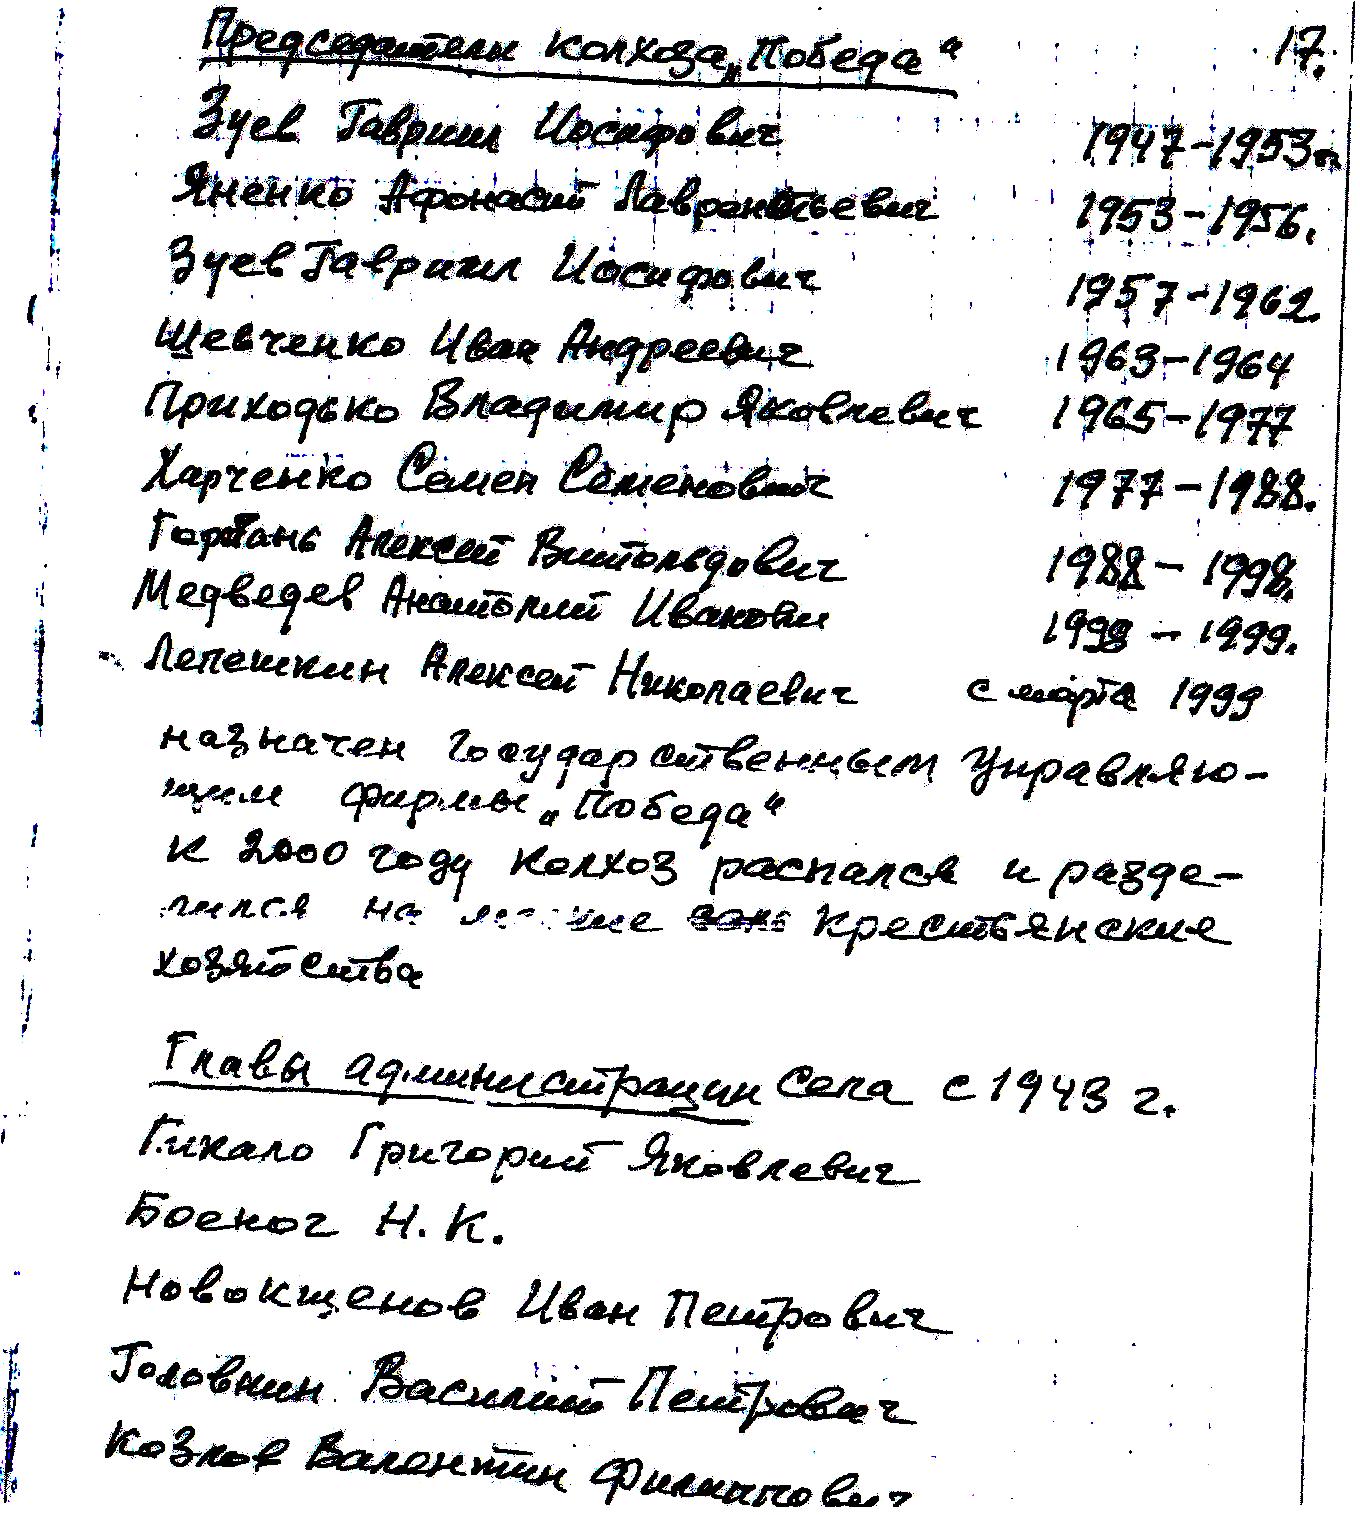 Председатели колхоза „Победа“ 17.
Зуев Гавриил Иосифович 1947-1953г.
Яненко Афонасий Лаврентьевич 1953-1956.
Зуев Гавриил Иосифович 1957-1962.
Шевченко Иван Андреевич 1963-1964
Приходько Владимир Яковлевич 1965-1977
Харченко Семен Семенович 1977-1988.
Алексей Витольдович 1988-1998.
Медведев Анатолий 1998-1999.
Лепешкин Алексей Николаевич с марта 1999
назначен Государственным Управляю-
щим фирмы „Победа“
К 2000 году колхоз распался и разде-
лился на Крестьянские
хозяйства
Главы администрации Села с 1943 г.
Гикало Григорий Яковлевич
Н.К.
Новокщенов Иван Петрович
Головкин Василий Петрович
Козлов Валентин Филиппович